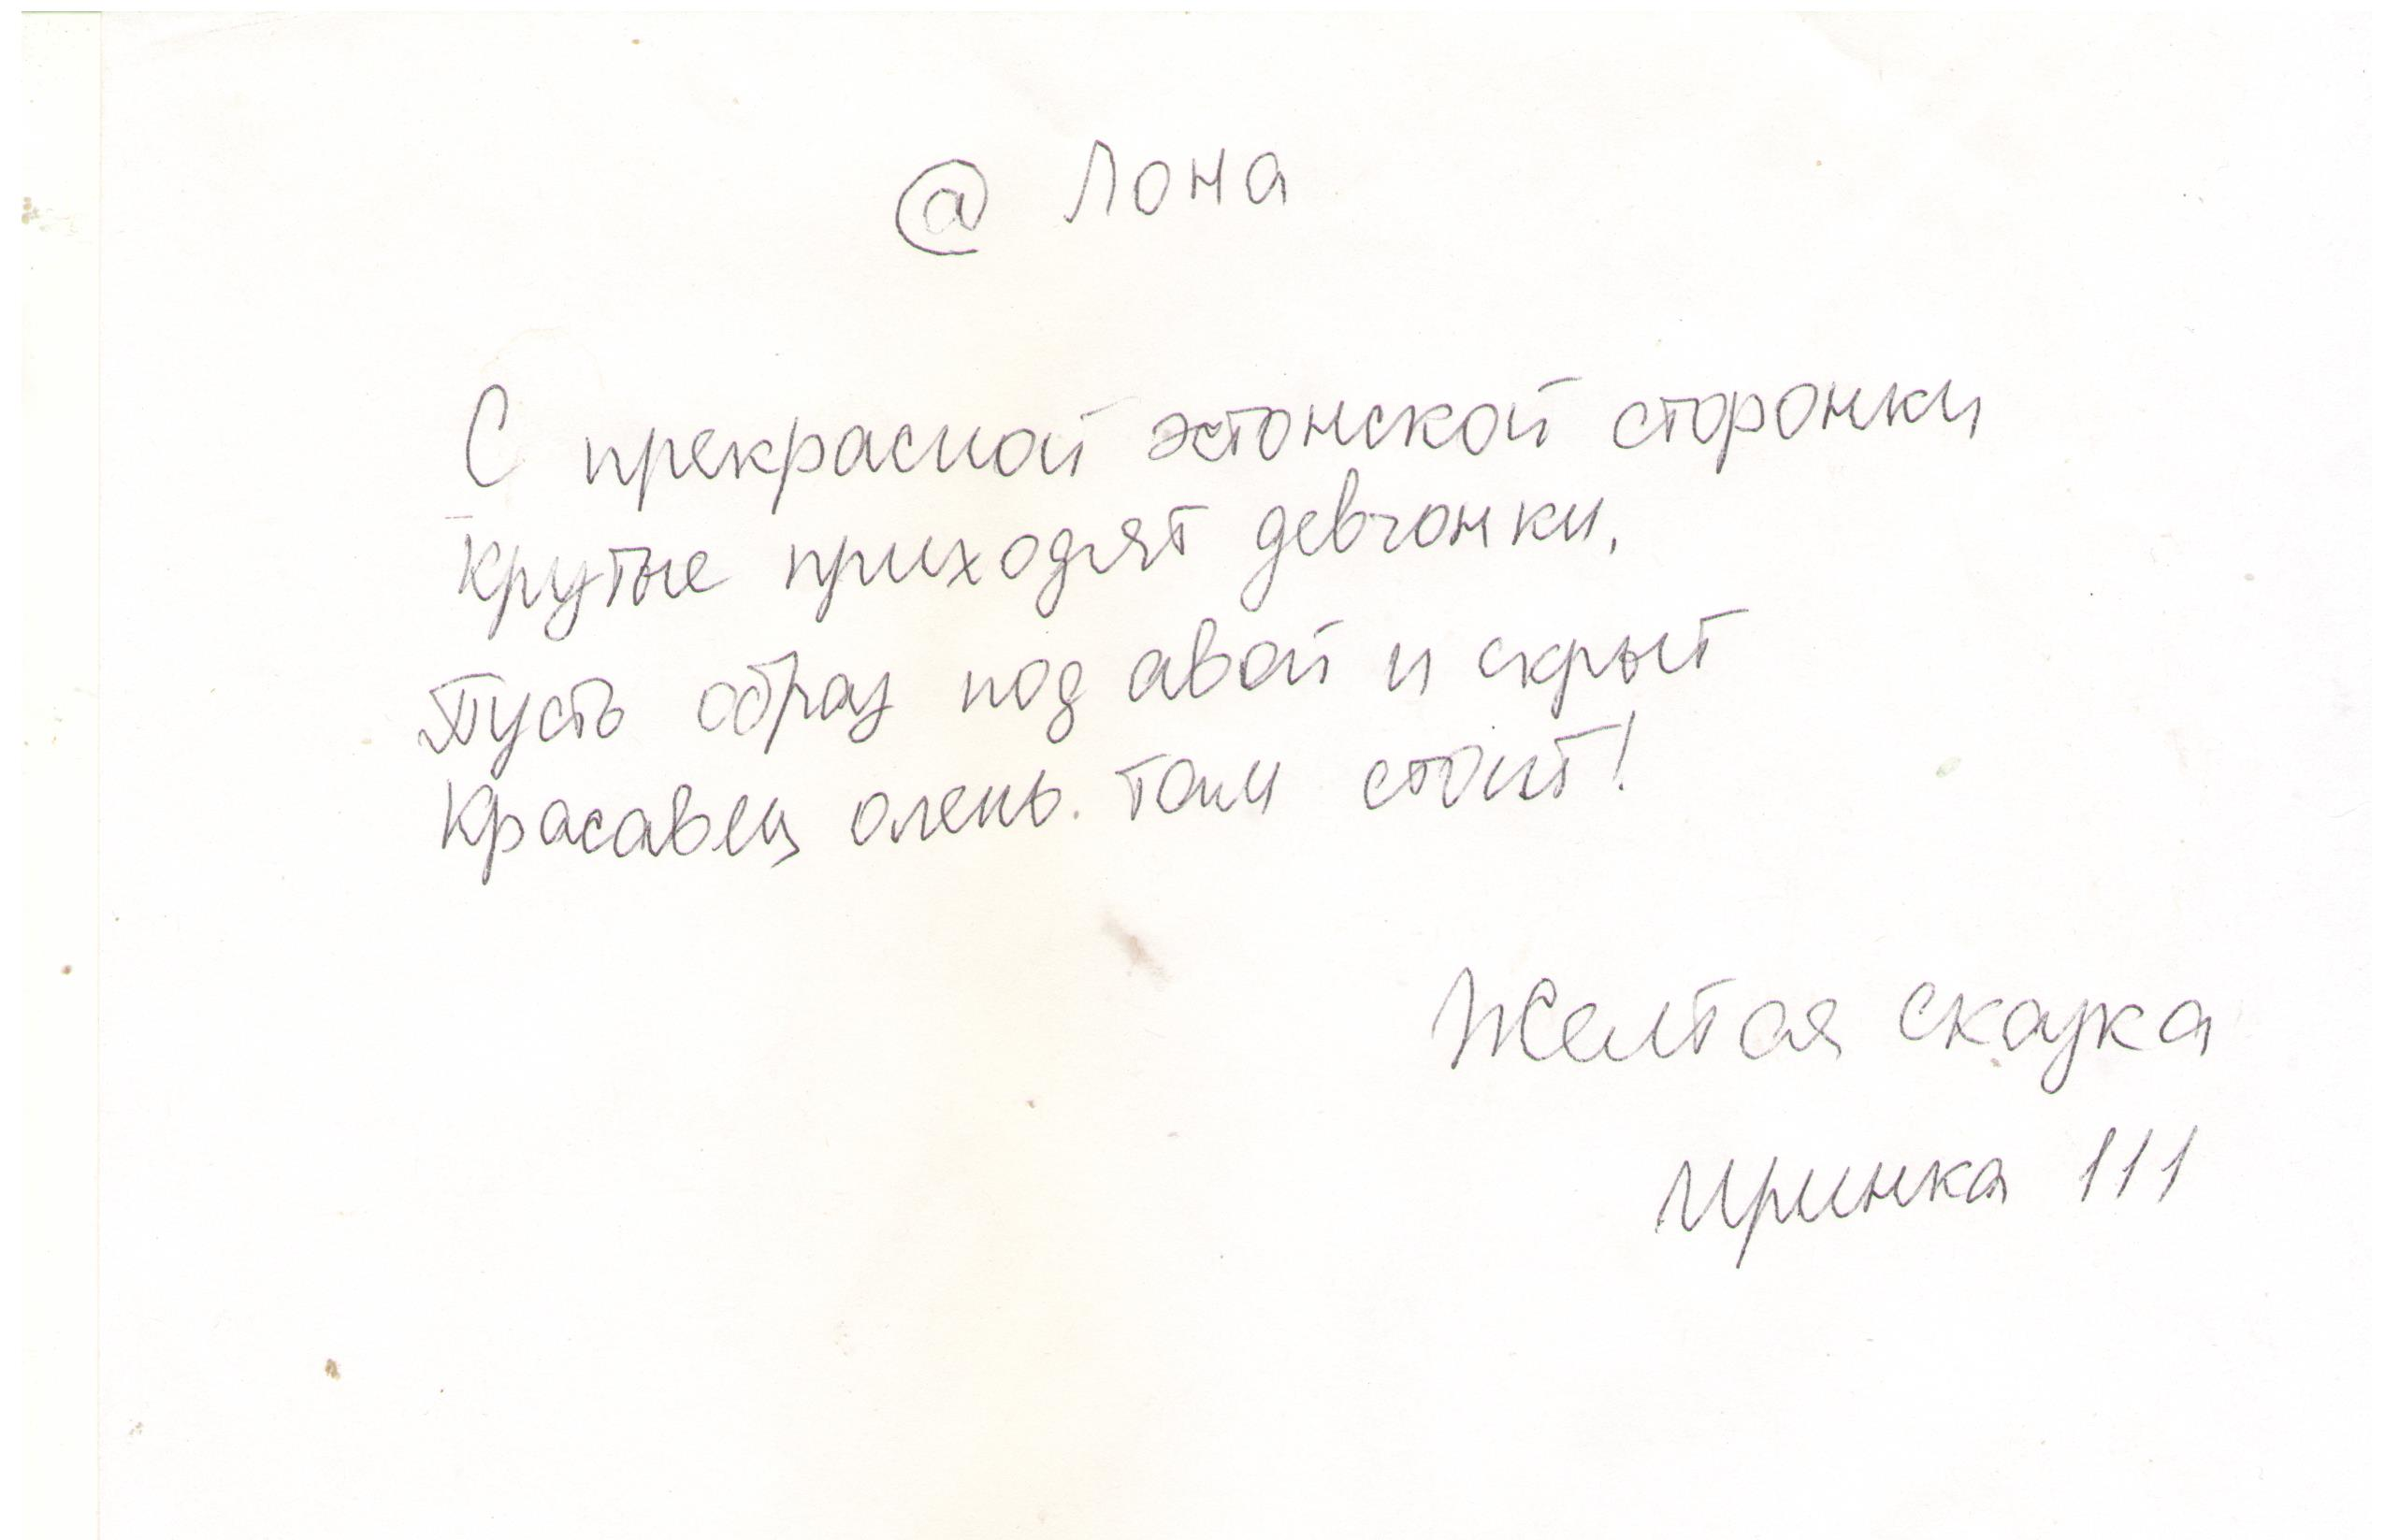 @ Лона
С прекрасной эстонской сторонки
крутые приходят девчонки.
Пусть образ под авой и скрыт
Красавец олень там стоит!
Желтая скаука
Иринка 111